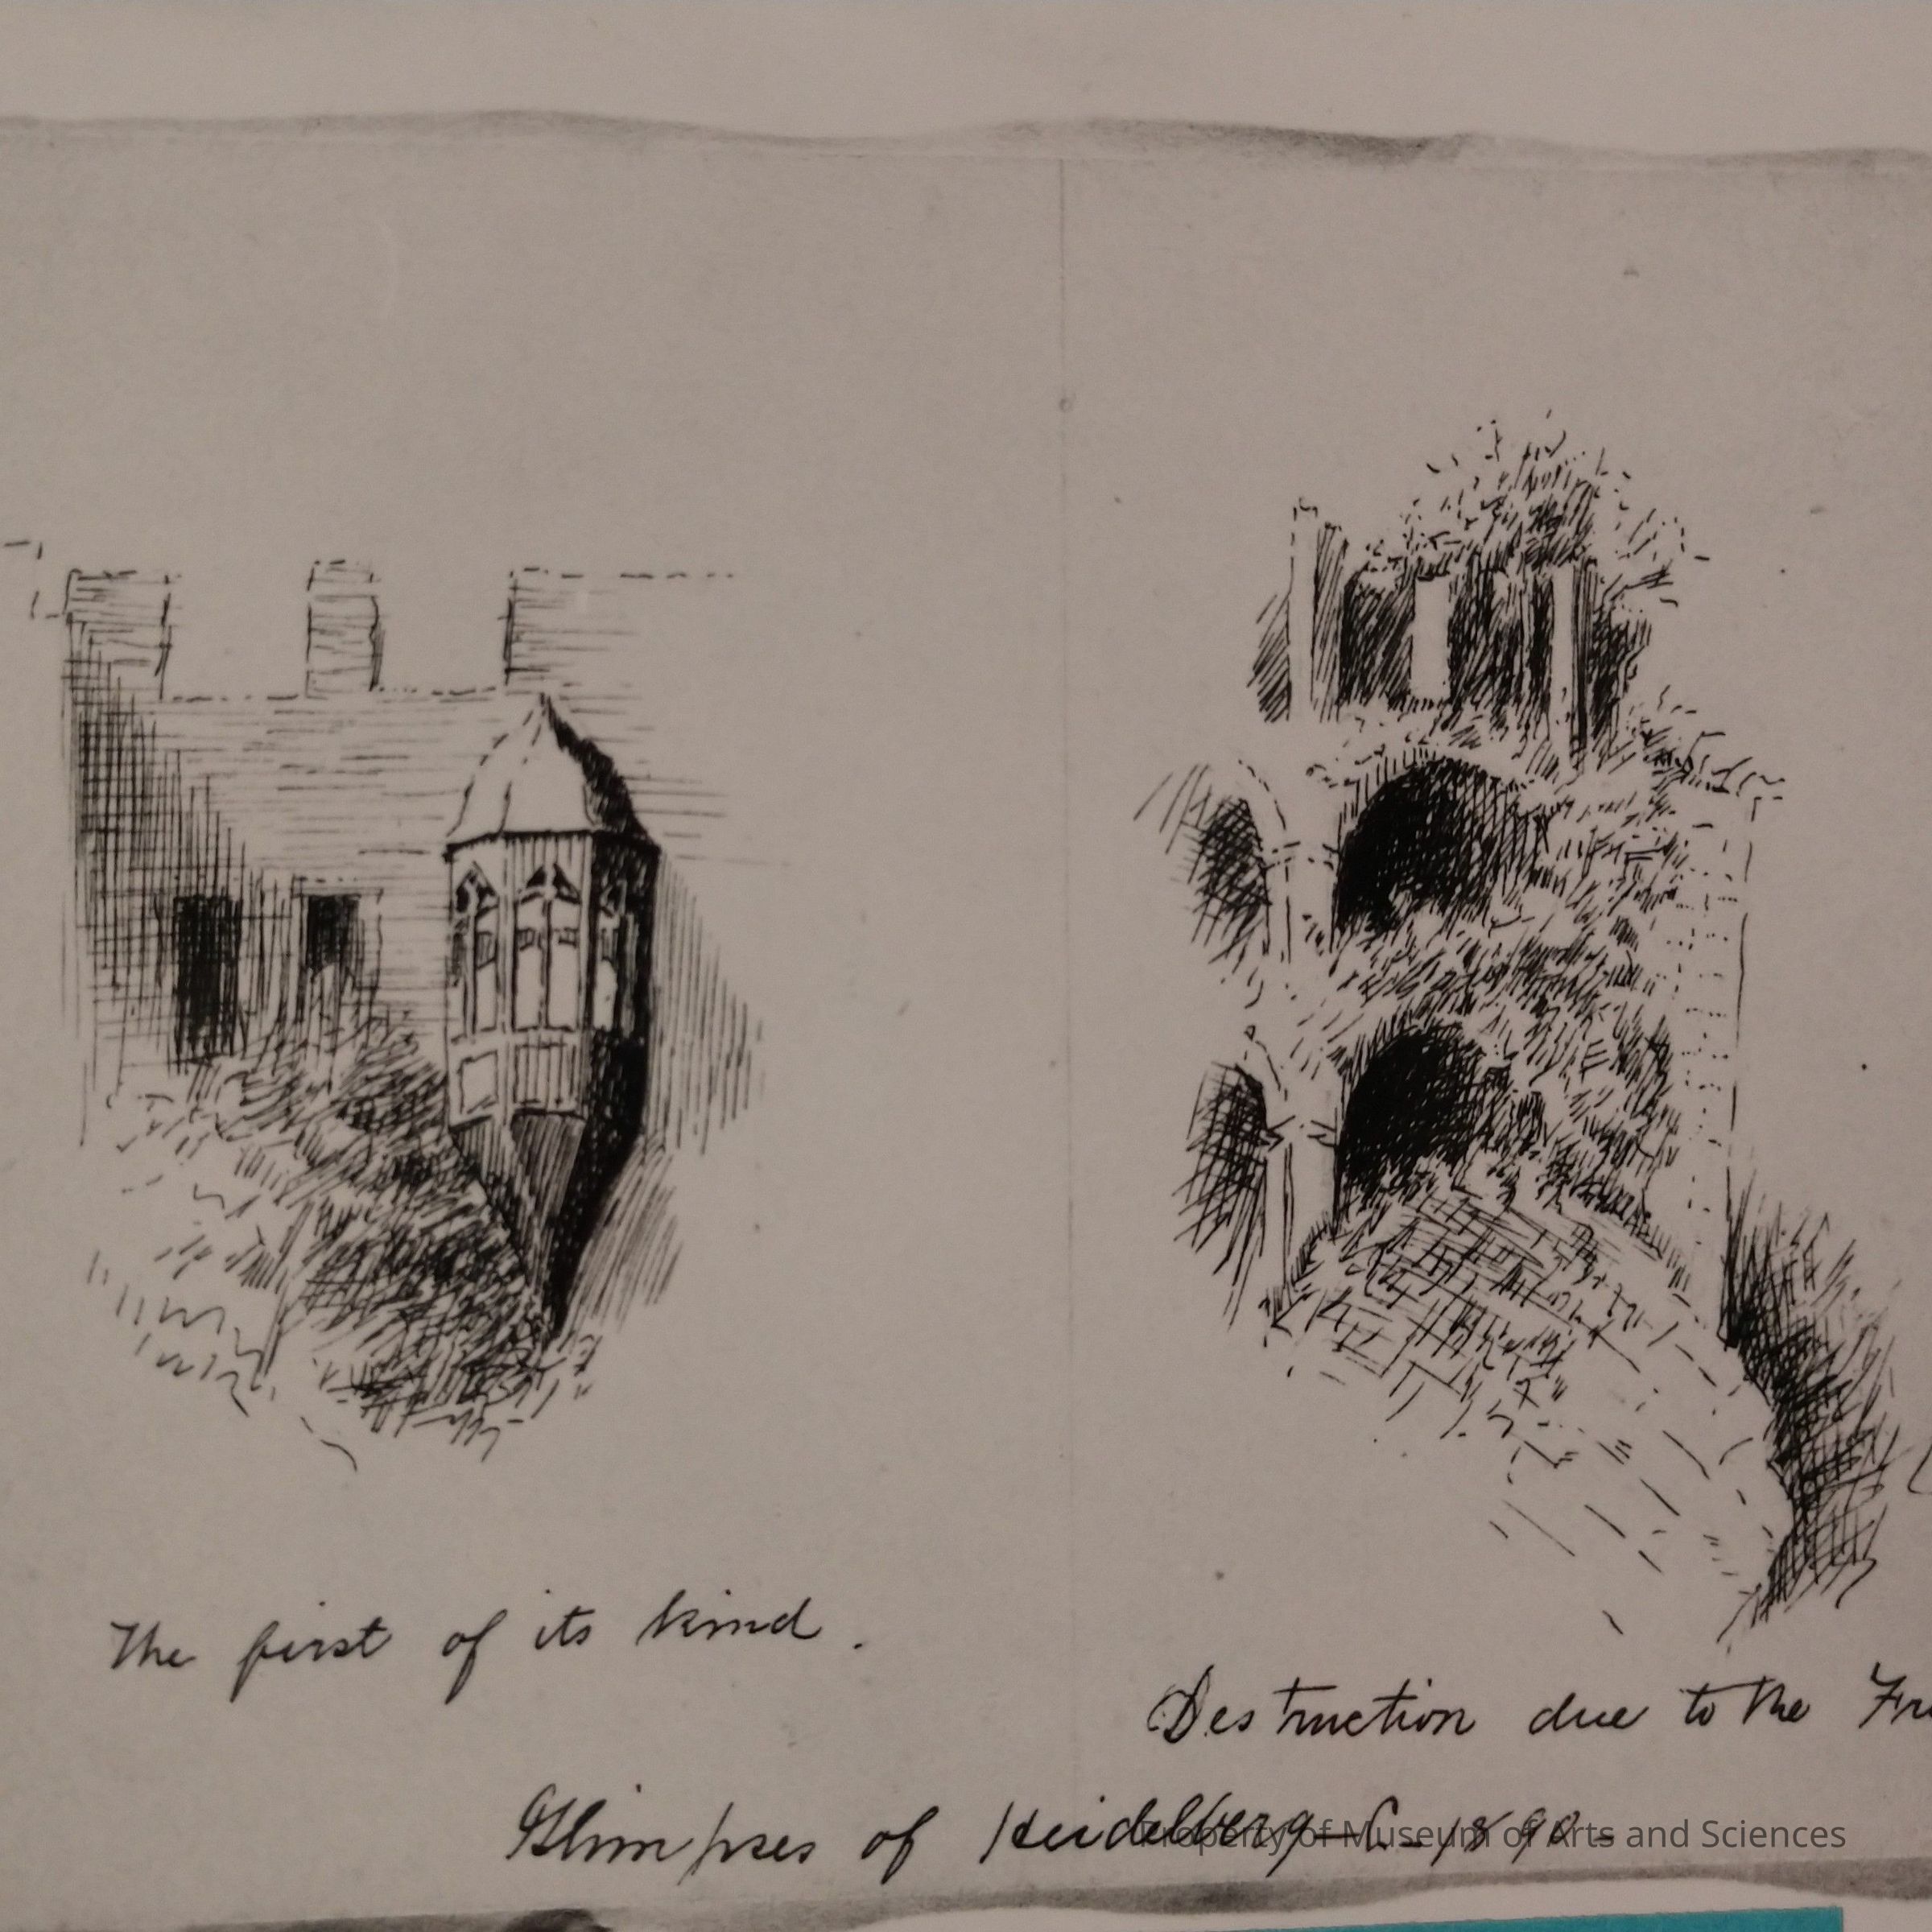 The first of its kind.
Destruction due to the
Glimpses of Heidelberg
Property of Museum of Arts and Sciences